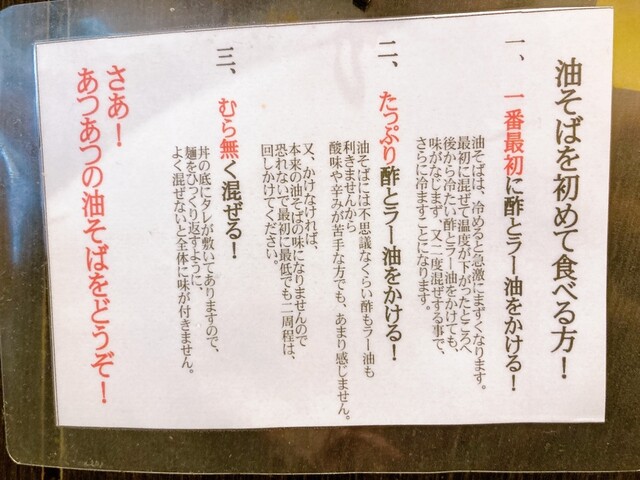 油そばを初めて食べる方！
一、一番最初に酢とラー油をかける！
油そばは、冷めると急激にまずくなります。
最初に混ぜて温度が下がったところへ
後から冷たい酢とラー油をかけても、
味がなじまず、又一度混ぜする事で、
さらに冷ますことになります。
二、たっぷり酢とラー油をかける！
油そばには不思議なくらい酢もラー油も
利きませんから
酸味や辛みが苦手な方でも、あまり感じません。
又、かけなければ、
本来の油そばの味になりませんので
恐れないで最初に最低でも二周程は、
回しかけてください。
三、むら無く混ぜる！
丼の底にタレが敷いてありますので、
麺をひっくり返すように、
よく混ぜないと全体に味が付きません。
さあ！
あつあつの油そばをどうぞ！